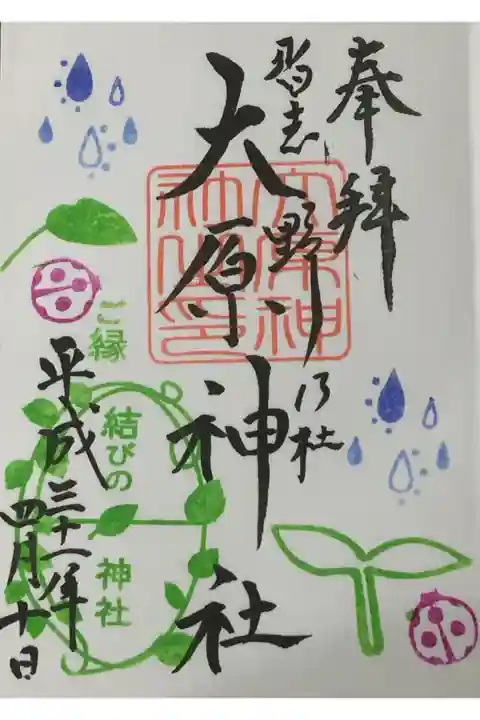 奉拝
習志野乃社
大原神社
大原神社之印
ご縁
結びの
神社
平成三十一年
四月十日